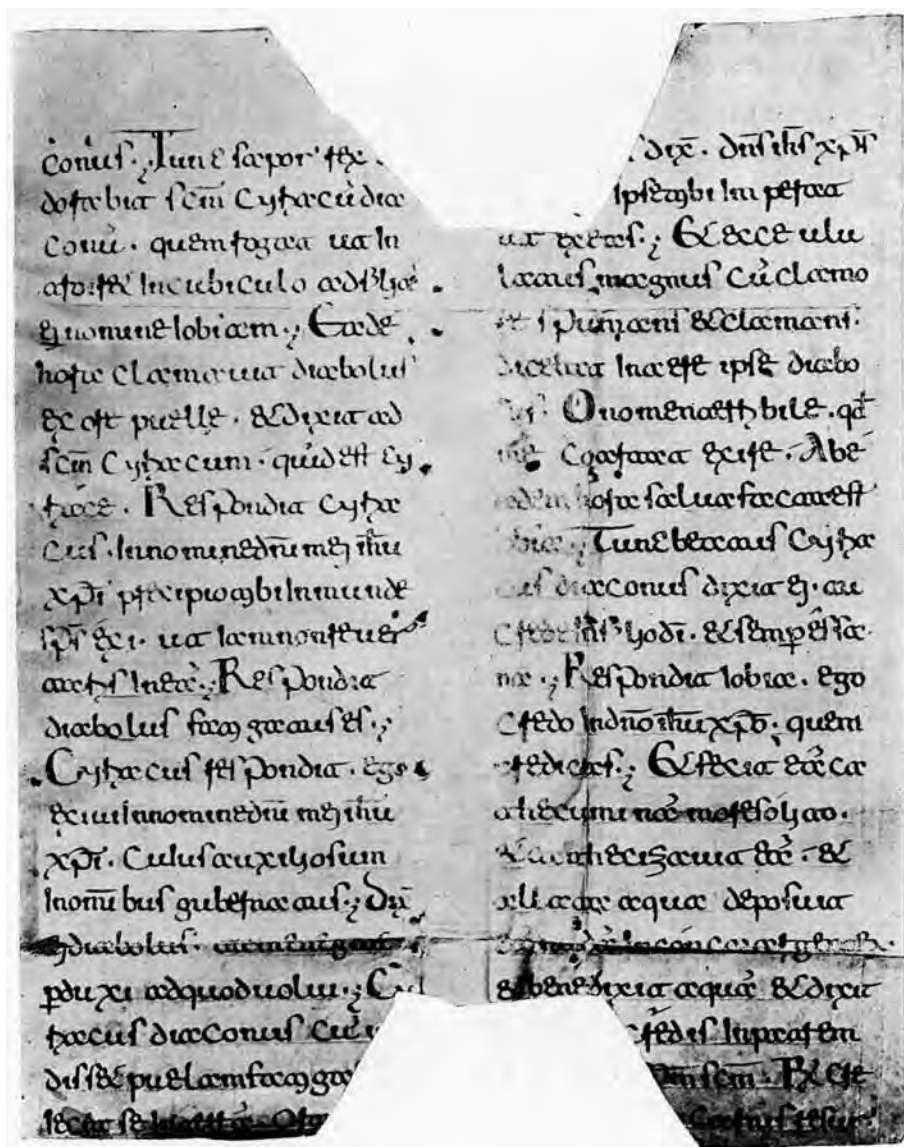 conus. Tunc sapor rex
dorabit scm Cyriacu dia
conu. quem rogat ut in
in cubiculo ad filia
ei nomine iobiam. Eade
hora clamauit diabolus
ex ore puelle. et dixit ad
scm Cyriacum. quid est cy
riace. Respondit Cyria
cus. In nomine dni mei ihu
xpi precipio tibi inmunde
sps exi. ut iam non reuer
taris in ea. Respondit
diabolus fatigatus es.
Cyriacus respondit. ego
exiui in nomine dni mei ihu
xpi. cuius auxilio sum
in omibus gubernatus. Dix
ei diabolus.
perduxi ad quod uolui. Cy
riacus diaconus cu
disset puellam
dix. dns ihs xps
ipse tibi imperat
ut exeas. Et ecce ulu
latus magnus cu clamo
re spumans et clamans.
dicebat in aere ipse diabo
lus. O nomen terribile. qd
me coartat exire. Ab e
adem hora salua facta est
iobia. Tunc beatus Cyria
cus diaconus dixit ei.
crede in fili di. et semper eris sa
na. Respondit iobia. ego
credo in dno ihu xpo. quem
predicas. Et fecit ea ca
thecumina more solito.
et cathecizauit ea. et
allata aqua deposuit
et benedixit aqua et dixit
credis in patrem
scm. Et